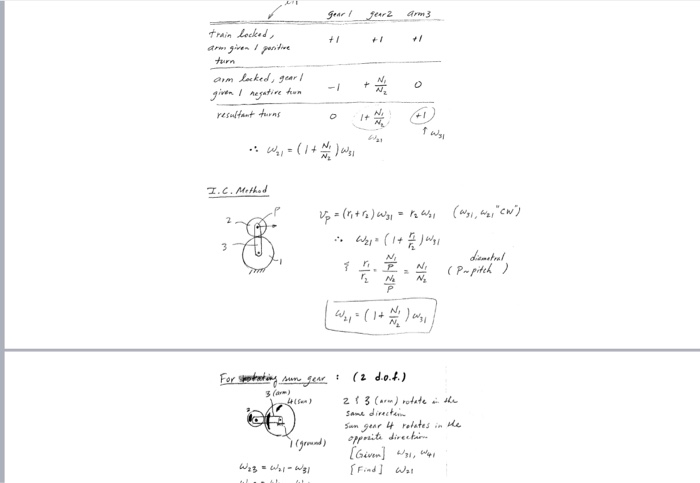 gear 1 gear 2 arm 3
train locked, +1 +1 +1
arm given 1 positive
turn
arm locked, gear 1 -1 + N₁/N₂ 0
given 1 negative turn
resultant turns 0 1 + N₁/N₂ +1
ω₂₁ ↑ ω₃₁
∴ ω₂₁ = (1 + N₁/N₂) ω₃₁
I.C. Method
P
2
3
1
Vp = (r₁ + r₂) ω₃₁ = r₂ ω₂₁ (ω₃₁, ω₂₁ "CW")
∴ ω₂₁ = (1 + r₁/r₂) ω₃₁
& r₁/r₂ = (N₁/P)/(N₂/P) = N₁/N₂ (P ~ diametral pitch)
ω₂₁ = (1 + N₁/N₂) ω₃₁
For sun gear : (2 d.o.f.)
3 (arm)
4 (sun)
2
1 (ground)
2 & 3 (arm) rotate in the
same direction
sun gear 4 rotates in the
opposite direction
[Given] ω₃₁, ω₄₁
[Find] ω₂₁
ω₂₃ = ω₂₁ - ω₃₁